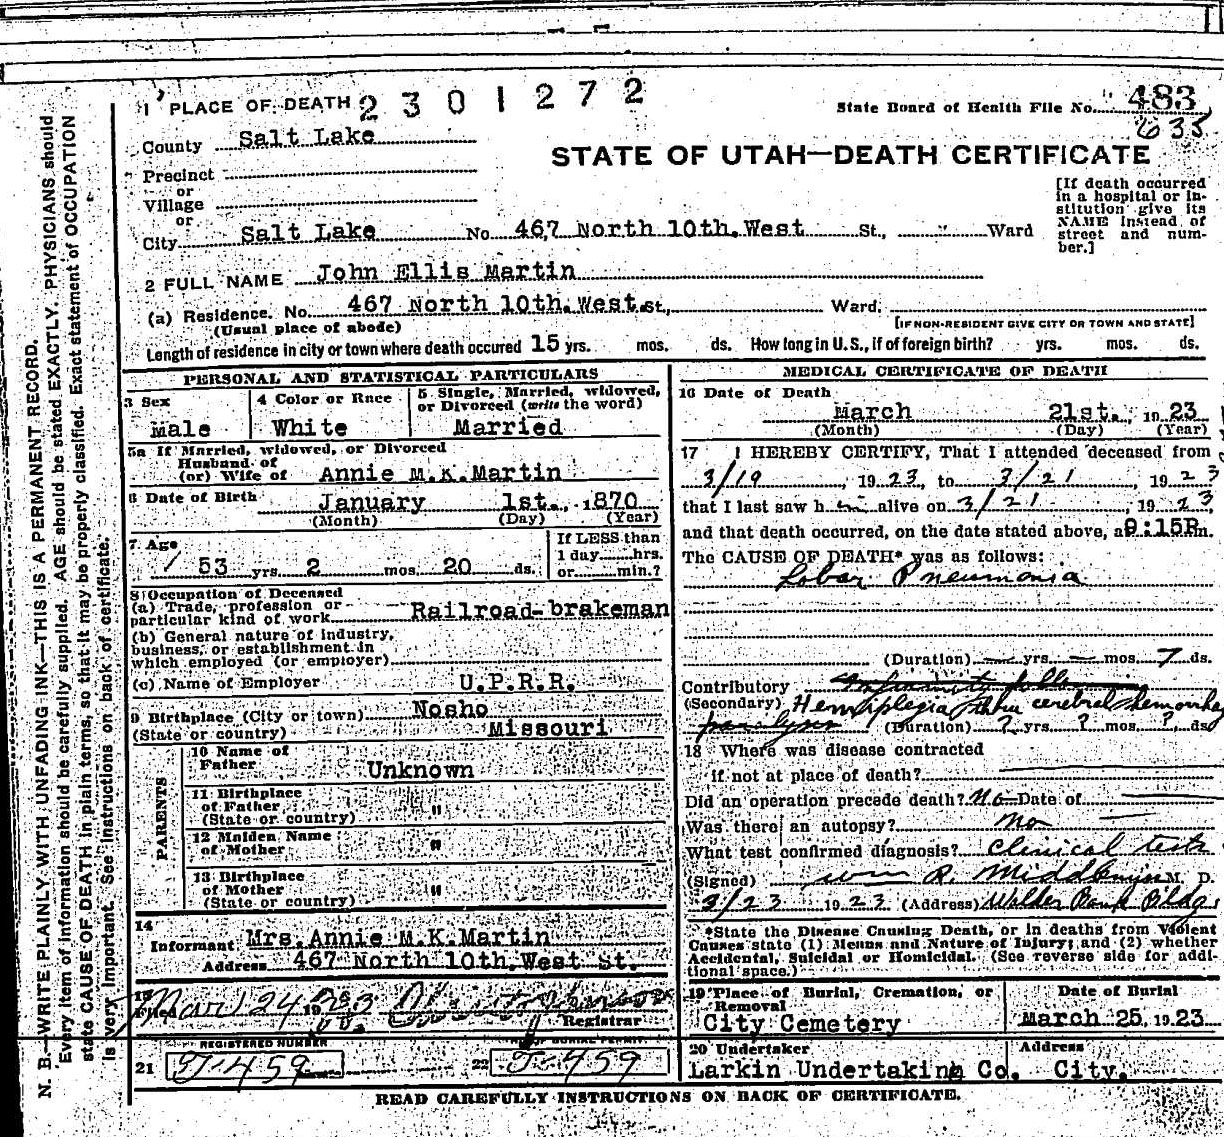 1 PLACE OF DEATH 2301272
State Board of Health File No. 483
635
County Salt Lake
STATE OF UTAH—DEATH CERTIFICATE
Precinct
or
Village
or
City Salt Lake No. 467 North 10th. West St., Ward
[If death occurred
in a hospital or in-
stitution give its
NAME instead of
street and num-
ber.]
2 FULL NAME John Ellis Martin
(a) Residence. No. 467 North 10th. West. St., Ward.
(Usual place of abode) [IF NON-RESIDENT GIVE CITY OR TOWN AND STATE]
Length of residence in city or town where death occured 15 yrs. mos. ds. How long in U.S., if of foreign birth? yrs. mos. ds.
PERSONAL AND STATISTICAL PARTICULARS
3 Sex
Male
4 Color or Race
White
5 Single, Married, widowed,
or Divorced (write the word)
Married
5a If Married, widowed, or Divorced
Husband of
(or) Wife of Annie M.K.Martin
6 Date of Birth January 1st., 1870
(Month) (Day) (Year)
7 Age
53 yrs. 2 mos. 20 ds.
If LESS than
1 day hrs.
or min.?
8 Occupation of Deceased
(a) Trade, profession or
particular kind of work Railroad-brakeman
(b) General nature of industry,
business, or establishment in
which employed (or employer)
(c) Name of Employer U.P.R.R.
9 Birthplace (City or town) Nosho
(State or country) Missouri
PARENTS
10 Name of
Father Unknown
11 Birthplace
of Father "
(State or country)
12 Maiden Name
of Mother "
13 Birthplace
of Mother "
(State or country)
14
Informant Mrs. Annie M.K.Martin
Address 467 North 10th. West St.
15
Filed Mar 24 1923
Registrar
REGISTERED NUMBER
21 J-459
BURIAL PERMIT
22 J-459
MEDICAL CERTIFICATE OF DEATH
16 Date of Death
March 21st., 1923
(Month) (Day) (Year)
17 I HEREBY CERTIFY, That I attended deceased from
3/19, 1923, to 3/21, 1923
that I last saw him alive on 3/21, 1923,
and that death occurred, on the date stated above, at 9:15P.m.
The CAUSE OF DEATH* was as follows:
Lobar Pneumonia
(Duration) — yrs. — mos. 7 ds.
Contributory
(Secondary) Hemiplegia thru cerebral hemorrhage
paralysis (Duration) ? yrs. ? mos. ? ds.
18 Where was disease contracted
if not at place of death?
Did an operation precede death? No Date of
Was there an autopsy? no
What test confirmed diagnosis? clinical tests
(Signed) Wm R. M. D.
3/23 1923 (Address) Walker Bank Bldg.
*State the Disease Causing Death, or in deaths from Violent
Causes state (1) Means and Nature of Injury; and (2) whether
Accidental, Suicidal or Homicidal. (See reverse side for addi-
tional space.)
19 Place of Burial, Cremation, or
Removal
City Cemetery
Date of Burial
March 25, 1923
20 Undertaker
Larkin Undertaking Co.
Address
City.
READ CAREFULLY INSTRUCTIONS ON BACK OF CERTIFICATE.
N. B.—WRITE PLAINLY, WITH UNFADING INK—THIS IS A PERMANENT RECORD.
Every item of information should be carefully supplied. AGE should be stated EXACTLY. PHYSICIANS should
state CAUSE OF DEATH in plain terms, so that it may be properly classified. Exact statement of OCCUPATION
is very important. See instructions on back of certificate.